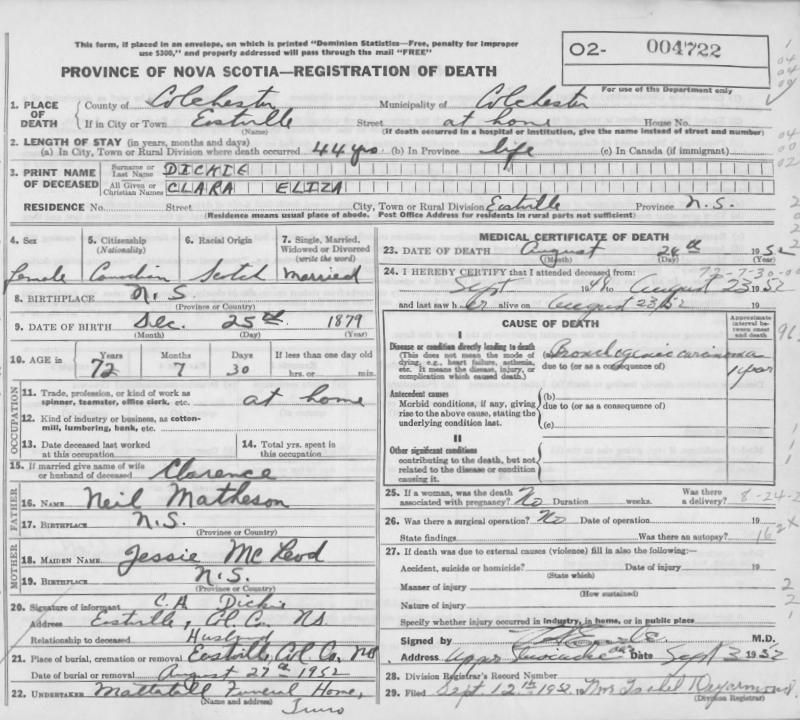 This form, if placed in an envelope, on which is printed "Dominion Statistics—Free, penalty for improper
use $300," and properly addressed will pass through the mail "FREE"
O2- 004722
For use of the Department only
PROVINCE OF NOVA SCOTIA—REGISTRATION OF DEATH
1. PLACE OF DEATH { County of Colchester Municipality of Colchester
If in City or Town Eastville Street at home House No.
(Name) (If death occurred in a hospital or institution, give the name instead of street and number)
2. LENGTH OF STAY (in years, months and days)
(a) In City, Town or Rural Division where death occurred 44 yrs (b) In Province life (c) In Canada (if immigrant)
3. PRINT NAME OF DECEASED { Surname or Last Name DICKIE
All Given or Christian Names CLARA ELIZA
RESIDENCE No. Street City, Town or Rural Division Eastville Province N.S.
(Residence means usual place of abode. Post Office Address for residents in rural parts not sufficient)
4. Sex 5. Citizenship (Nationality) 6. Racial Origin 7. Single, Married, Widowed or Divorced (write the word)
female Canadian Scotch Married
8. BIRTHPLACE N.S.
(Province or Country)
9. DATE OF BIRTH Dec. 25th 1879
(Month) (Day) (Year)
10. AGE in Years Months Days If less than one day old
72 7 30 hrs. or min.
OCCUPATION
11. Trade, profession, or kind of work as spinner, teamster, office clerk, etc. at home
12. Kind of industry or business, as cotton-mill, lumbering, bank, etc.
13. Date deceased last worked at this occupation 14. Total yrs. spent in this occupation
15. If married give name of wife or husband of deceased Clarence
FATHER
16. NAME Neil Matheson
17. BIRTHPLACE N.S.
(Province or Country)
MOTHER
18. MAIDEN NAME Jessie McLeod
19. BIRTHPLACE N.S.
(Province or Country)
20. Signature of informant C.A. Dickie
Address Eastville, Col. Co. N.S.
Relationship to deceased Husband
21. Place of burial, cremation or removal Eastville, Col. Co. NS
Date of burial or removal August 27th 1952
22. UNDERTAKER Mattatall Funeral Home,
(Name and address) Truro
MEDICAL CERTIFICATE OF DEATH
23. DATE OF DEATH August 24th 1952
(Month) (Day) (Year)
72-7-30-00
24. I HEREBY CERTIFY that I attended deceased from:
Sept 1948 to August 23 1952
and last saw her alive on August 23/52 19
CAUSE OF DEATH
Approximate interval between onset and death
I
Disease or condition directly leading to death (a) Bronchogenic carcinoma
(This does not mean the mode of dying, e.g., heart failure, asthenia, etc. It means the disease, injury, or complication which caused death.)
due to (or as a consequence of) 1 year
Antecedent causes (b)
Morbid conditions, if any, giving rise to the above cause, stating the underlying condition last.
due to (or as a consequence of)
(c)
II
Other significant conditions
contributing to the death, but not related to the disease or condition causing it.
25. If a woman, was the death associated with pregnancy? No Duration weeks. Was there a delivery? 8-24-2
26. Was there a surgical operation? No Date of operation 19
State findings Was there an autopsy?
162x
27. If death was due to external causes (violence) fill in also the following:—
Accident, suicide or homicide? Date of injury 19
(State which)
Manner of injury
(How sustained)
Nature of injury
Specify whether injury occurred in industry, in home, or in public place
Signed by M.D.
Address Upper Date Sept 3 1952
28. Division Registrar's Record Number
29. Filed Sept. 12th 1952 19 Mrs Isabel Dayarmond
(Division Registrar)